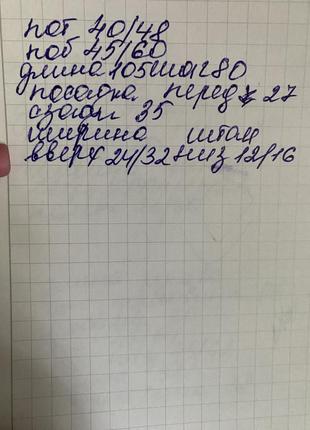 пот 40/48
поб 45/60
длина 105шаг80
посадка перед 27
сзади 35
ширина штан
вверх 24/32 низ 12/16